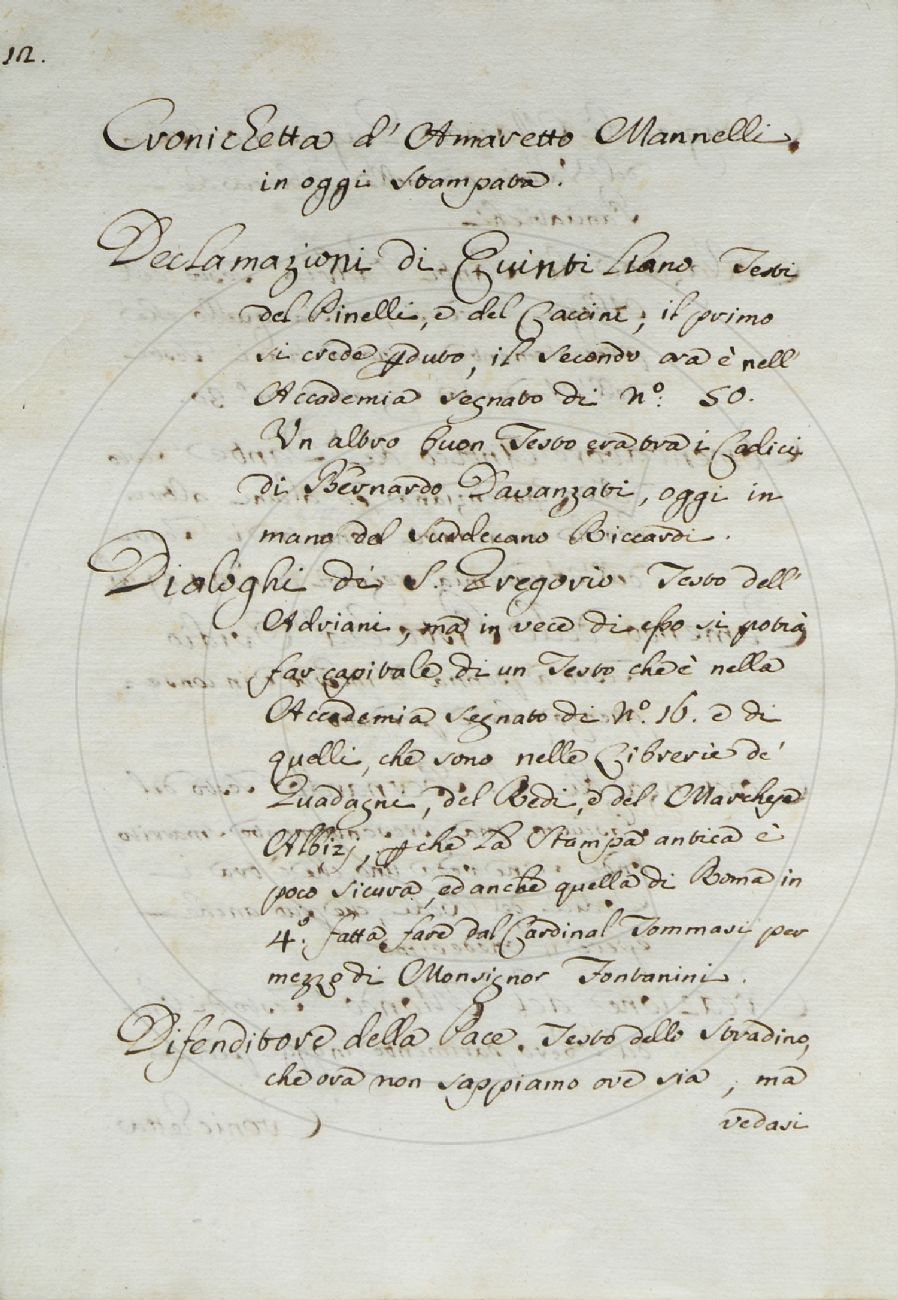 12.
Cronichetta d' Amaretto Mannelli
in oggi stampata.
Declamazioni di Quintiliano Testi
del Pinelli, e del Caccini; il primo
si crede ꝑduto, il secondo ora è nell'
Accademia segnato di N.º 50.
Un altro buon Testo era tra i Codici
di Bernardo Davanzati, oggi in
mano del Suddecano Riccardi.
Dialoghi di S. Gregorio Testo dell'
Adriani, ma in vece di esso si potrà
far capitale di un Testo che è nella
Accademia segnato di N.º 16. e di
quelli, che sono nelle Librerie de'
Guadagni, del Redi, e del Marchese
Albizj, ꝑche la Stampa antica è
poco sicura, ed anche quella di Roma in
4.º fatta fare dal Cardinal Tommasi per
mezzo di Monsignor Fontanini.
Difenditore della Pace. Testo dello Stradino,
che ora non sappiamo ove sia, ma
vedasi